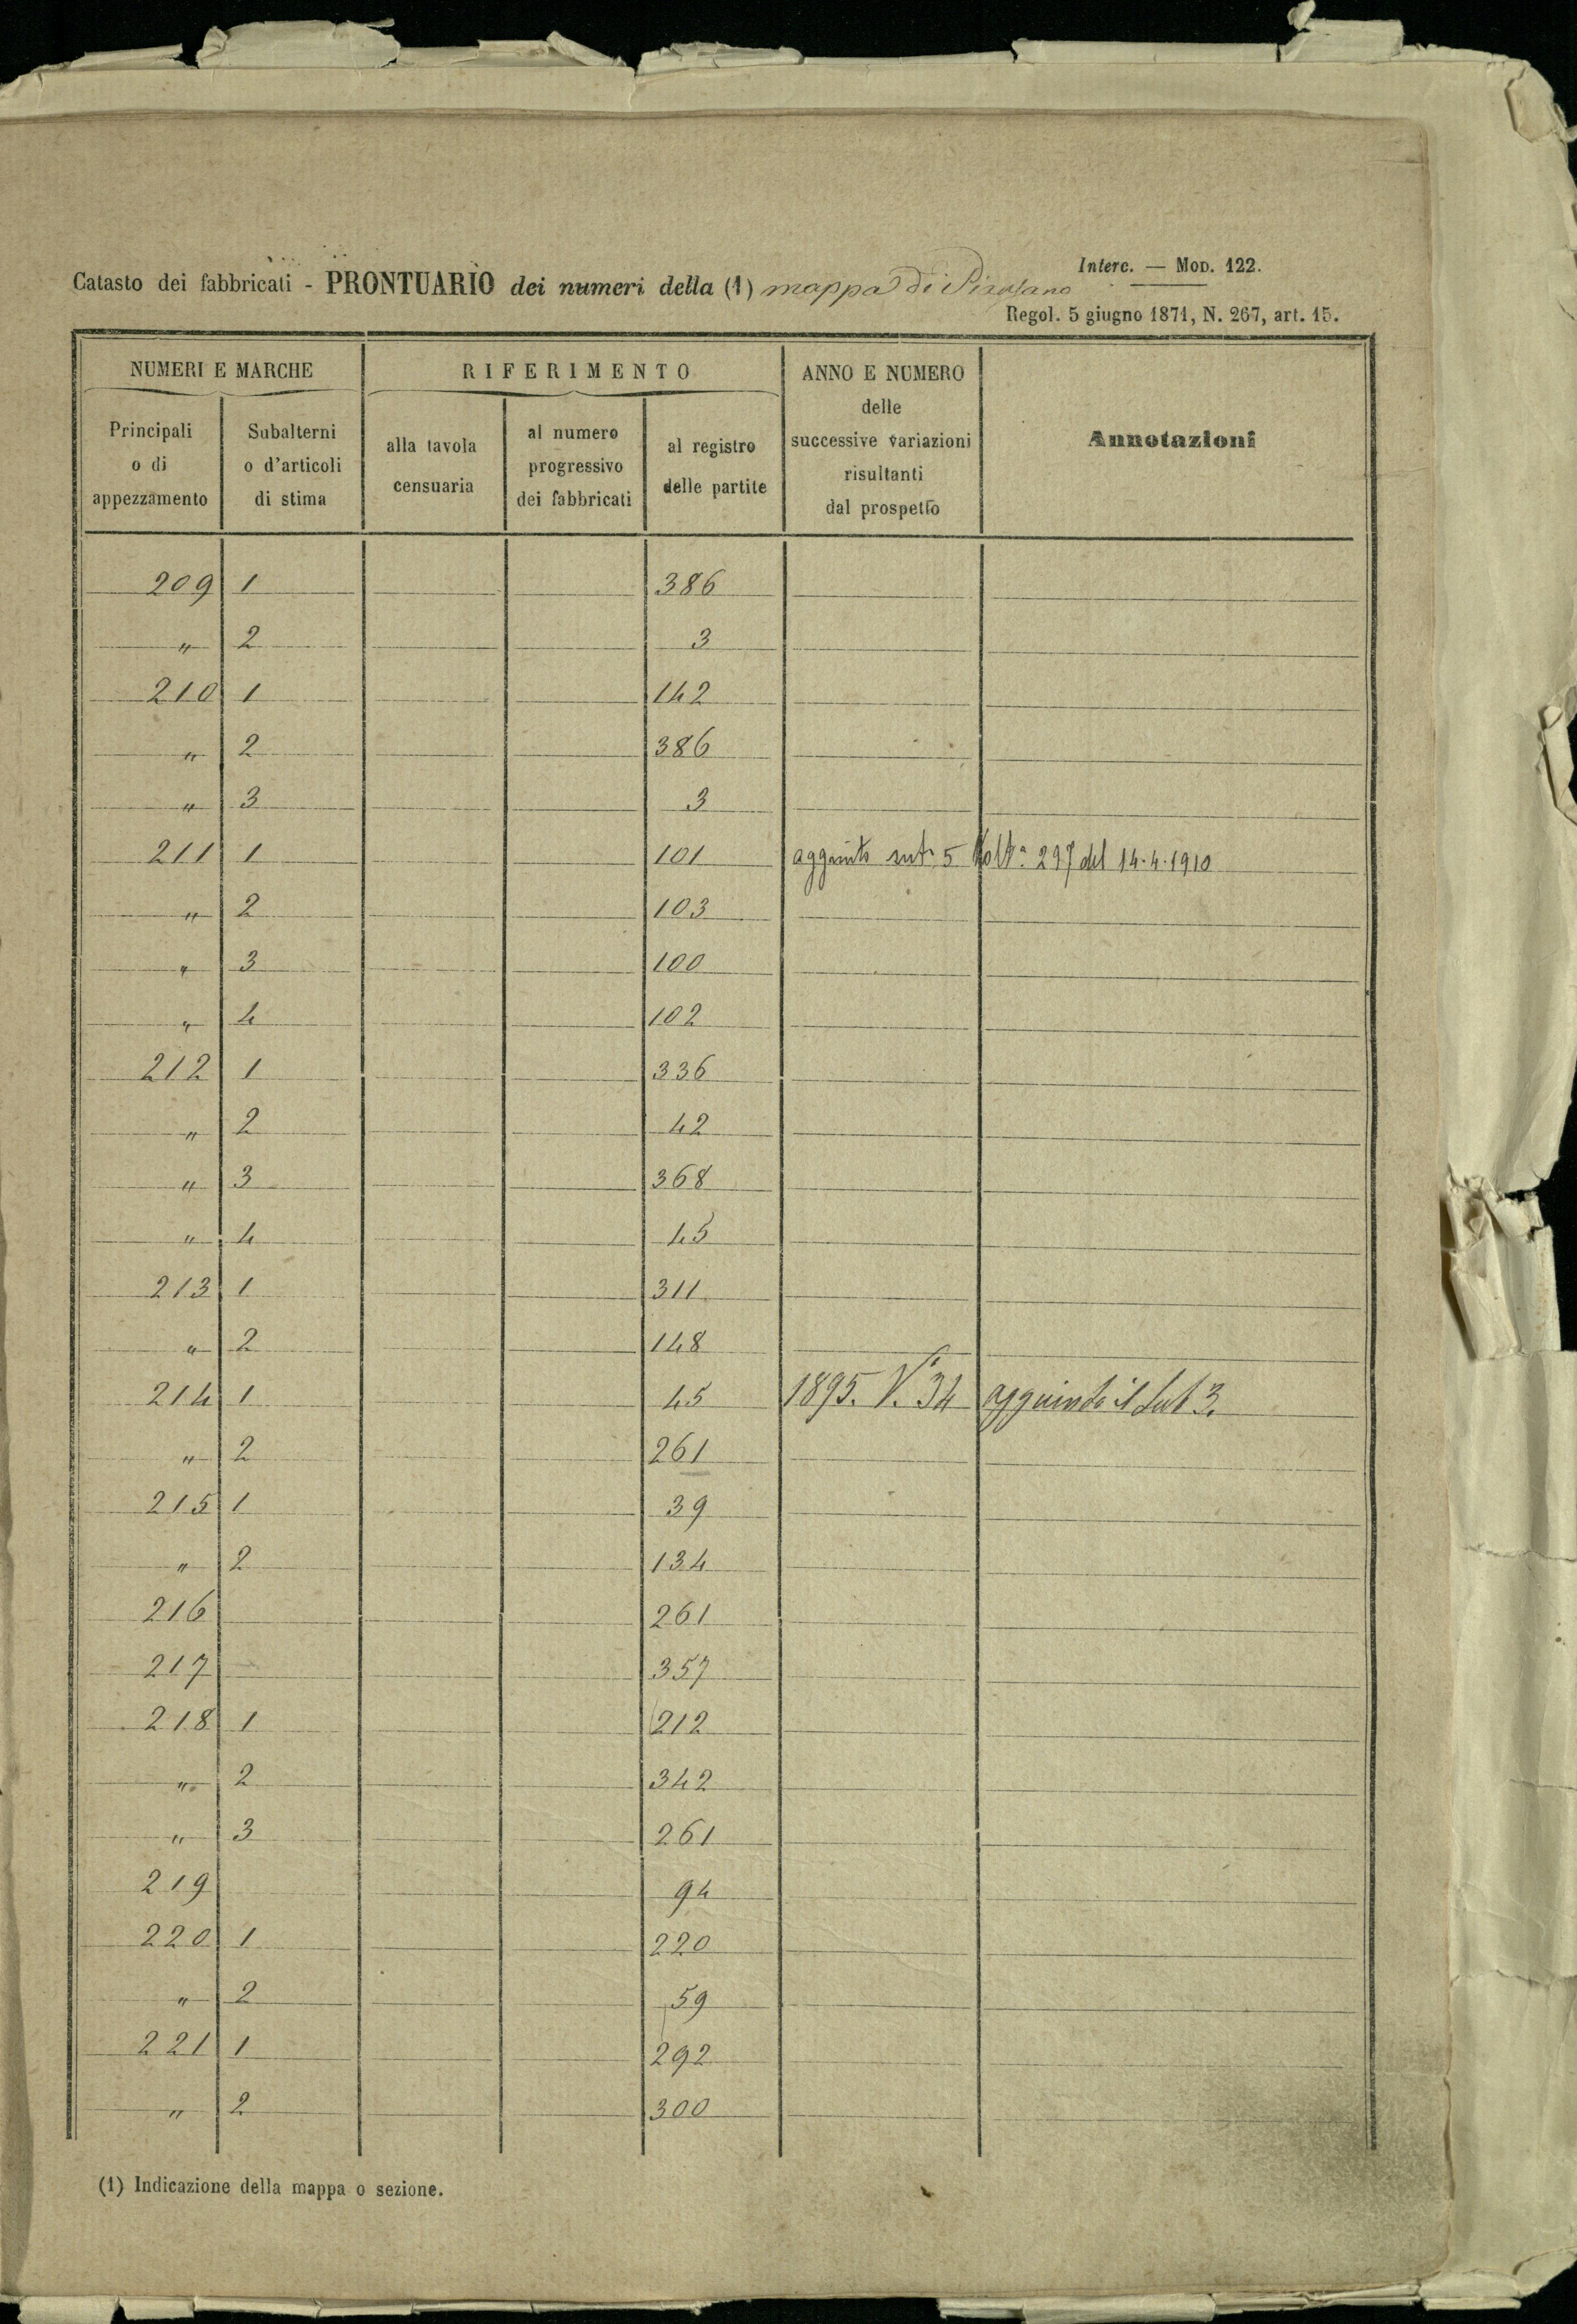 Interc. — Mod. 122.
Catasto dei fabbricati - PRONTUARIO dei numeri della (1) mappa di
Regol. 5 giugno 1871, N. 267, art. 15.
NUMERI E MARCHE | RIFERIMENTO | ANNO E NUMERO delle successive variazioni risultanti dal prospetto | Annotazioni
Principali o di appezzamento | Subalterni o d'articoli di stima | alla tavola censuaria | al numero progressivo dei fabbricati | al registro delle partite
209 1 386
" 2 3
210 1 142
" 2 386
" 3 3
211 1 101 aggiunto sub. 5 297 del 14.4.1910
" 2 103
" 3 100
" 4 102
212 1 336
" 2 42
" 3 368
" 4 45
213 1 311
" 2 148
214 1 45 1895. V. 34 aggiunto il sub 3.
" 2 261
215 1 39
" 2 134
216 261
217 357
218 1 212
" 2 342
" 3 261
219 94
220 1 220
" 2 59
221 1 292
" 2 300
(1) Indicazione della mappa o sezione.